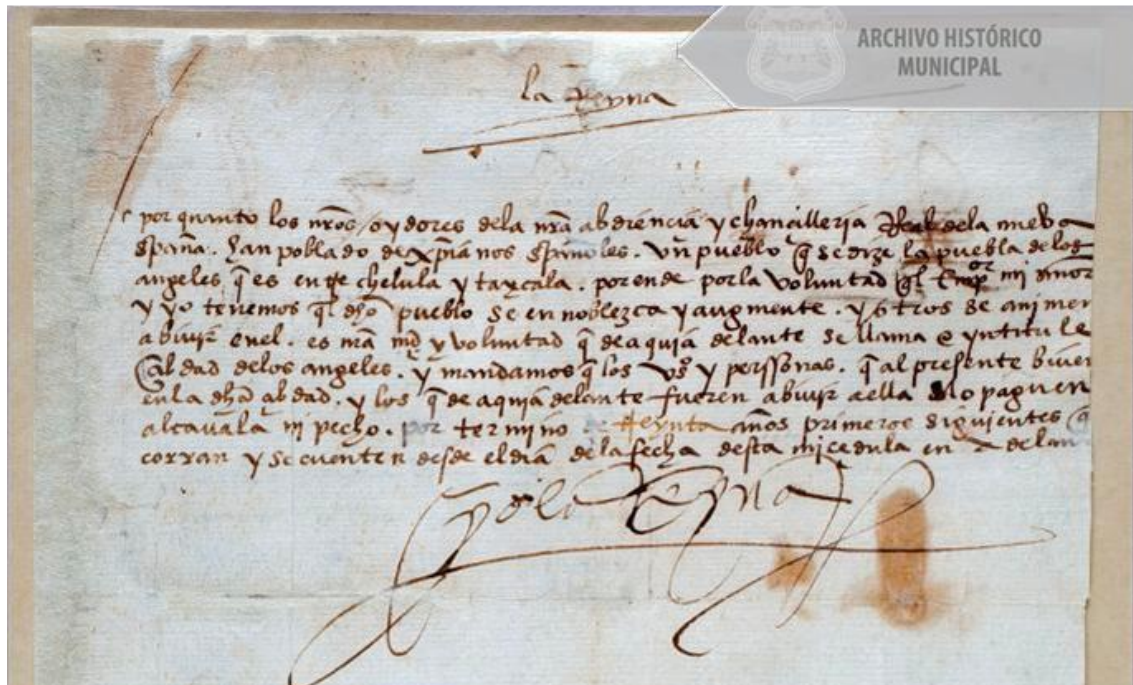 ARCHIVO HISTÓRICO
MUNICIPAL
la Reyna
por quanto los nros oydores dela nra abdiençia y chançilleria Real dela nueba
españa. han poblado de xpianos españoles. vn pueblo q se dize la puebla delos
angeles, q es entre chelula y taxcala. porende por la voluntad ql Empor mi señor
y yo tenemos ql dho pueblo se en noblezca y augmente. y otros se animen
a biuir enel. es nra md y voluntad q de aqui a delante se llama e yntitule
çibdad delos angeles. y mandamos q los vos y perssonas. q al presente biuen
en la dha çibdad. y los q de aqui a delante fueren abiuir a ella no paguen
alcavala ni pecho. por termino de treynta años primeros siguientes q
corran y se cuenten desde el dia de la fecha desta mi cedula en
yo la Reyna